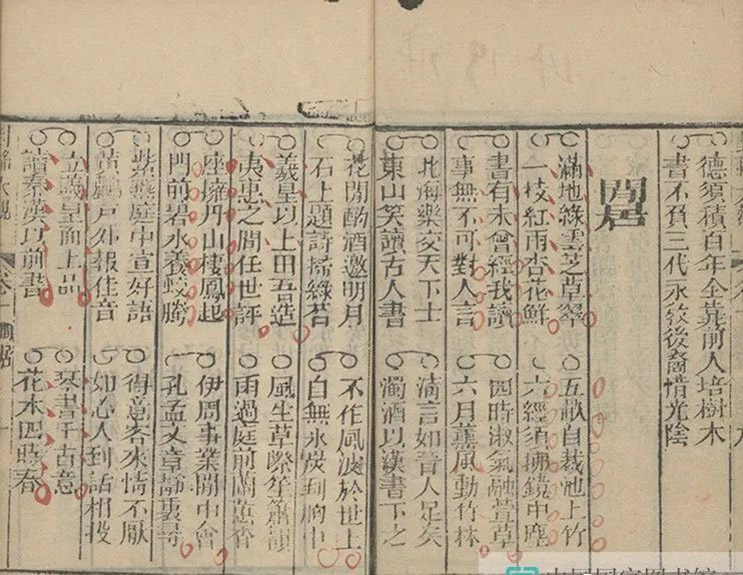 德須積百年全靠前人培樹木
書不負三代永後裔惜光陰
閒居
滿地綠雲芝草翠 五畝自裁池上竹
一枝紅雨杏花鮮 六經須拂鏡中塵
書有未曾經我讀 四時淑氣融萱草
事無不可對人言 六月薰風動竹林
北海樂交天下士 清言如晉人足矣
東山笑讀古人書 濁酒以漢書下之
花開酌酒邀明月 不作風波於世上
石上題詩掃綠苔 自無冰炭到胸中
羲皇以上由吾造 風生草際笙簫韻
夷惠之間任世評 雨過庭前蘭蕙香
座擁丹山棲鳳起 伊周事業閒中會
門前碧水養蛟騰 孔孟文章靜裏尋
紫燕庭中宣好語 得意客來情不厭
喜鵲戶外報佳音 如心人到話相投
立羲皇而上品 琴書千古意
讀秦漢以前書 花木四時春
大觀 卷一 閒居